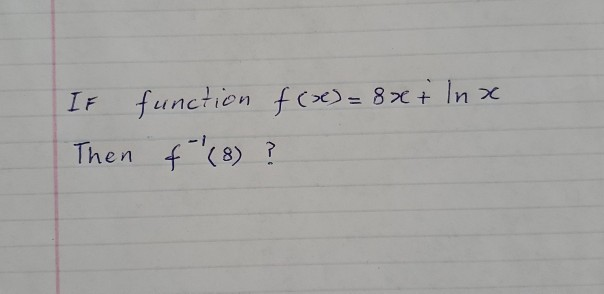 IF function f(x) = 8x + ln x
Then f⁻¹(8) ?